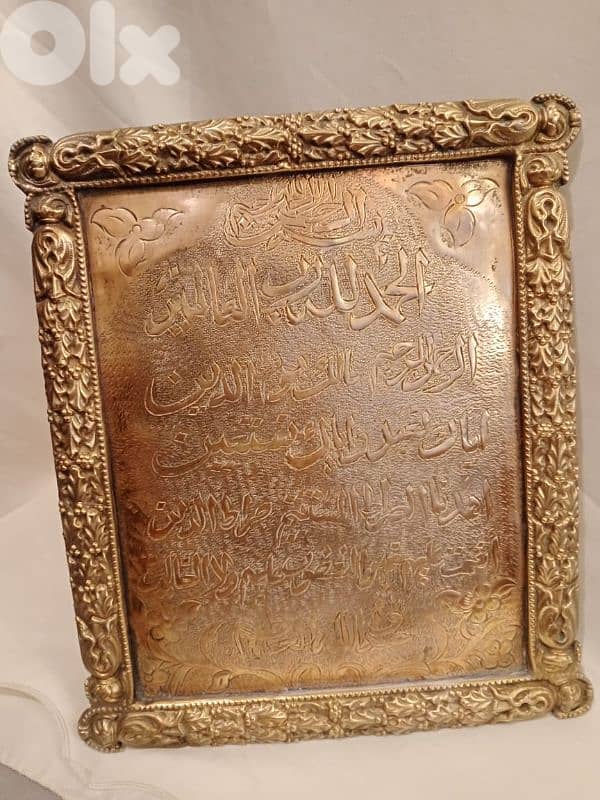 olx
بسم الله الرحمن الرحيم
الحمد لله رب العالمين
الرحمن الرحيم مالك يوم الدين
اياك نعبد واياك نستعين
اهدنا الصراط المستقيم صراط الذين
انعمت عليهم غير المغضوب عليهم ولا الضالين